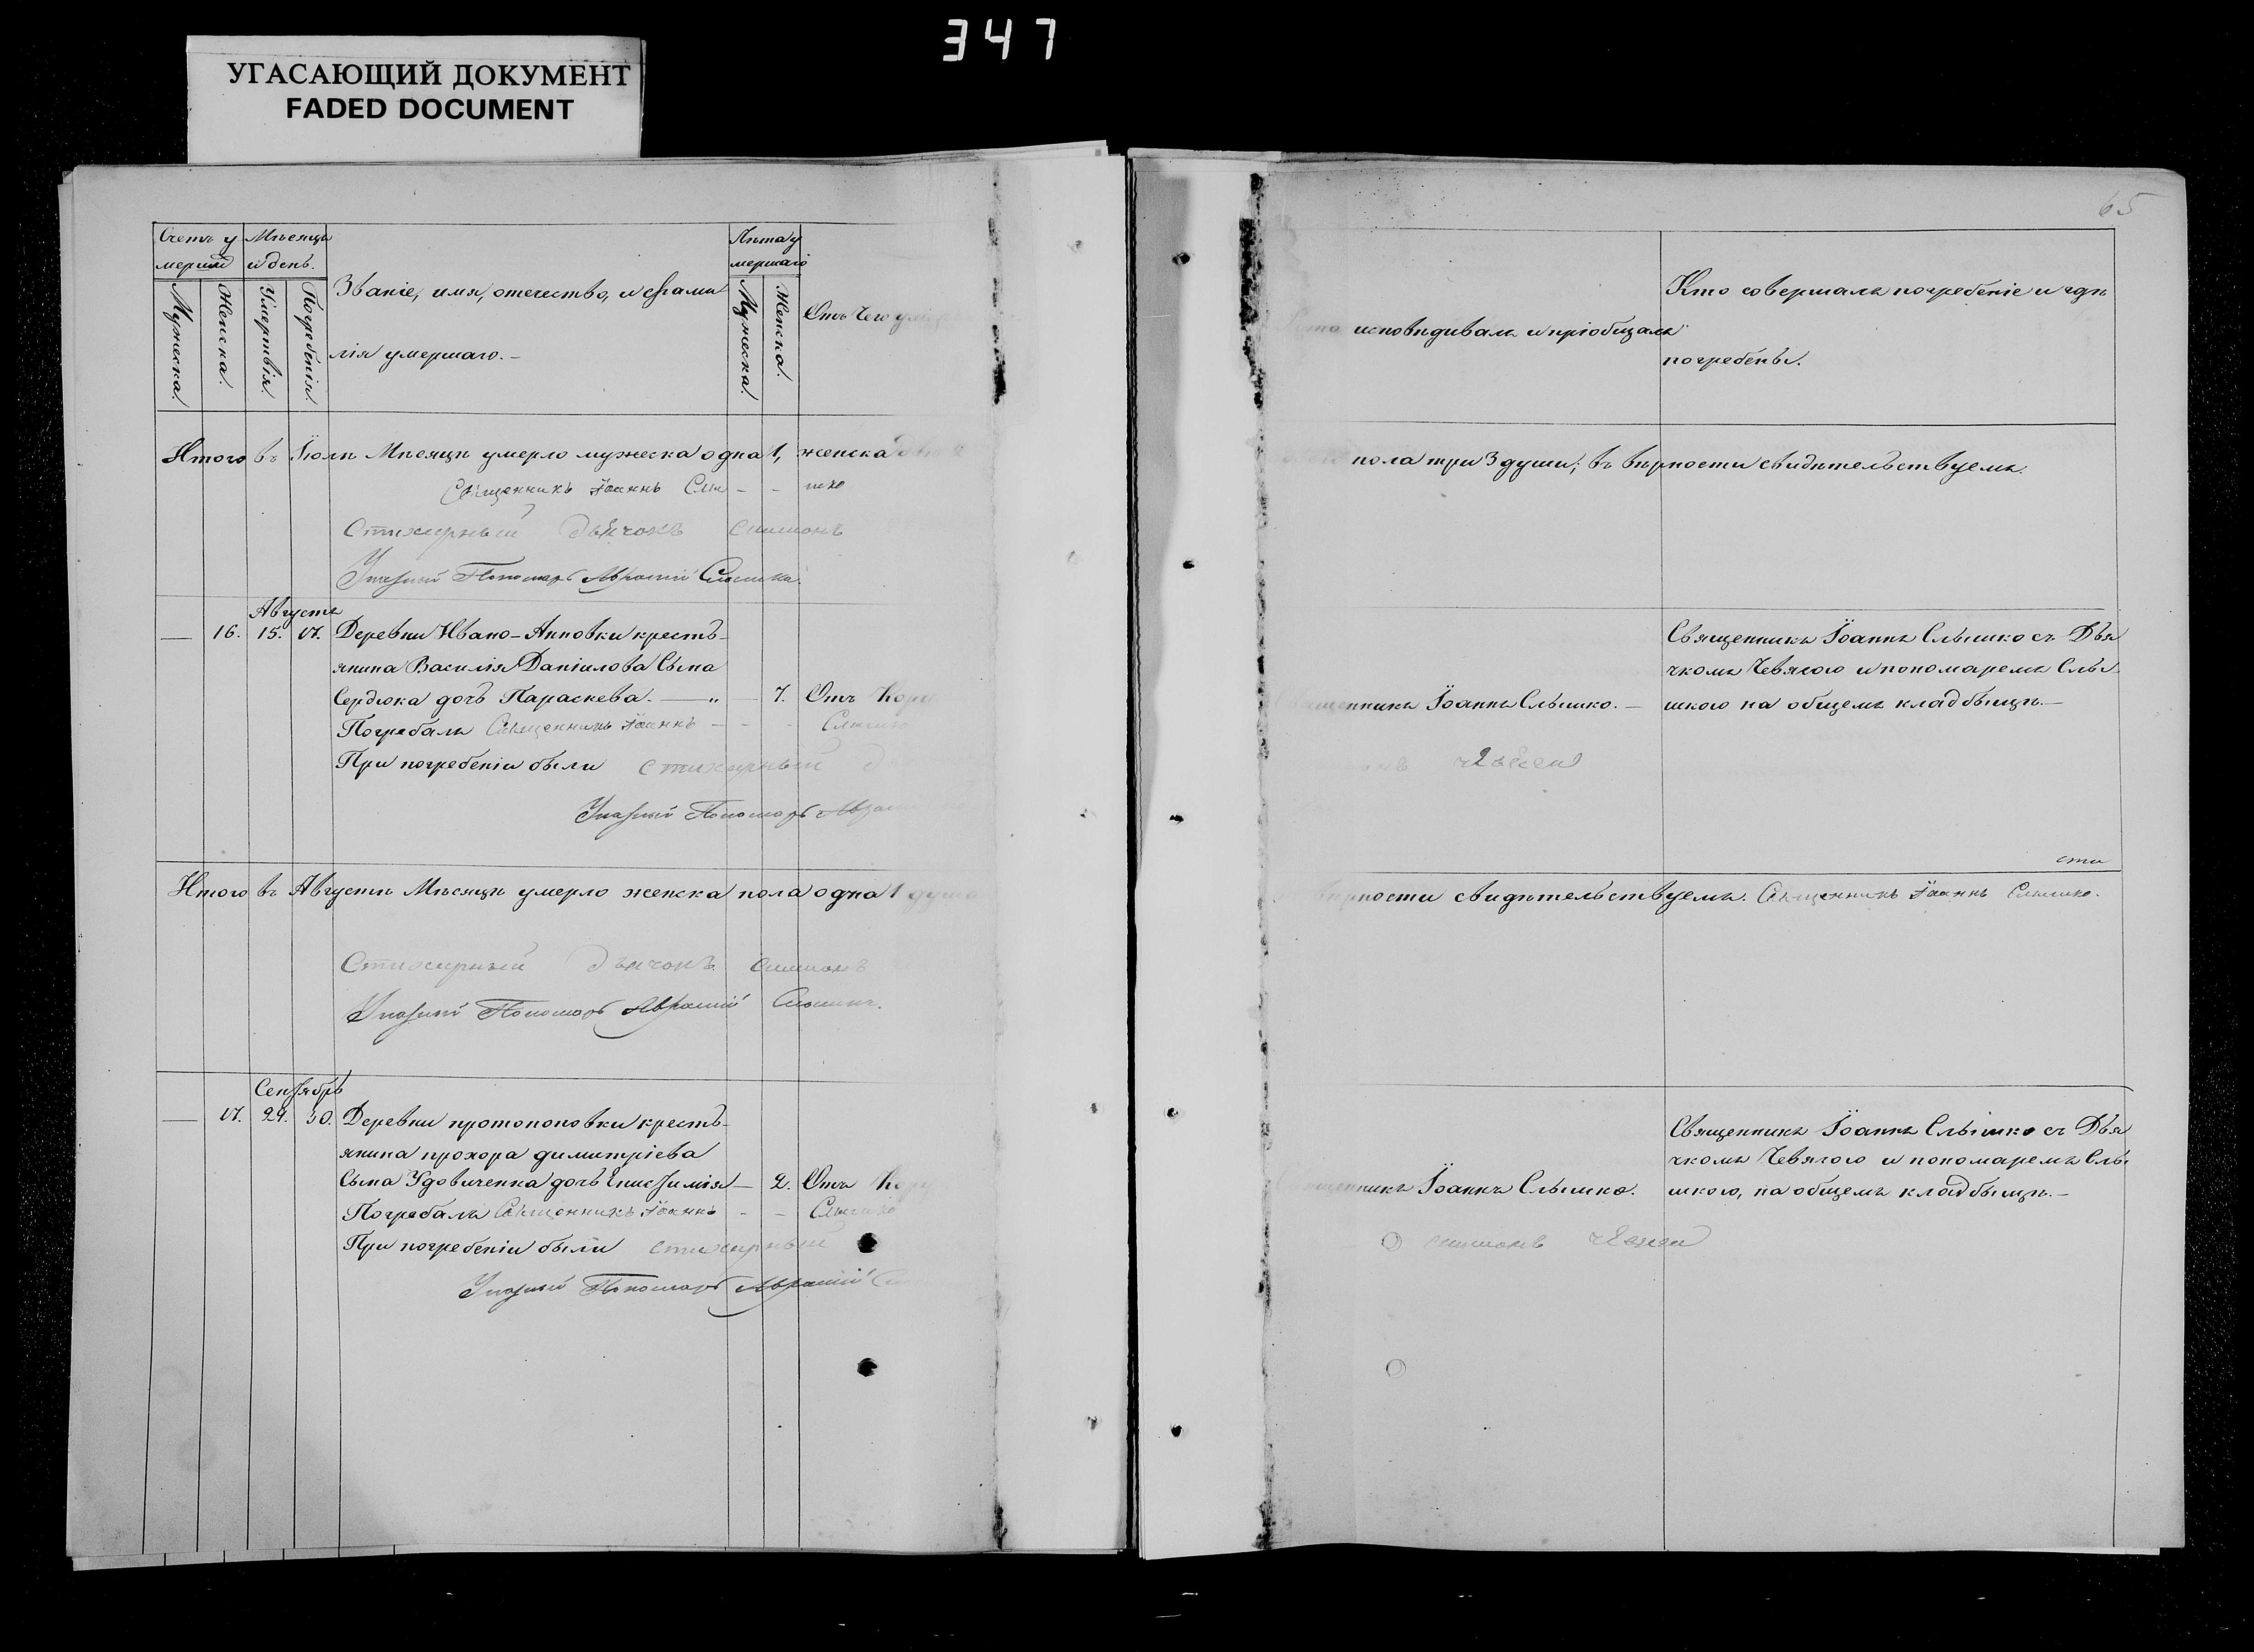 347
УГАСАЮЩИЙ ДОКУМЕНТ
FADED DOCUMENT
65
Счетъ у
мершихъ
Мѣсяцъ
и день.
Мужеска.
Женска.
Умертвія.
Погребенія.
Званіе, имя, отечество, и фами
лія умершаго.-
Лѣта у
мершаго
Мужеска.
Женска.
Отъ чего
исповѣдивалъ и пріобщалъ
Кто совершалъ погребеніе и гдѣ
погребены.
Итого въ Іюлѣ Мѣсяцѣ умерло мужеска одна 1, женска
пола три 3 души; въ вѣрности свидѣтельствуемъ.
Священникъ Іоаннъ Слы - - шко
Стихарный дьячокъ Симионъ
Указный Пономарь Слышка.
Августъ
— 16. 15. 17. Деревни Ивано-Анновки кресть-
янина Василія Даніилова Сына
Сердюка дочь Параскева. — „ — 7. Отъ
Погребалъ Священникъ Іоаннъ - - - Слышко
При погребеніи были стихарный
Указный Пономарь
Священникъ Іоаннъ Слышко. —
Священникъ Іоаннъ Слышко съ Дья
чкомъ Чевягою и пономаремъ Слы-
шкою на общемъ кладбищѣ.—
Итого въ Августѣ Мѣсяцѣ умерло женска пола одна 1 душа
сти
вѣрности свидѣтельствуемъ. Священникъ Іоаннъ Слышко.
Стихарный дьячокъ Симионъ
Указный Пономарь
Сентябрь
— 17. 29. 30. Деревни протопоповки кресть-
янина прохора димитріева
Сына Удовиченка дочь — 2. Отъ
Погребалъ Священникъ Іоаннъ - - Слышко
При погребеніи были стихарный
Указный Пономарь
Священникъ Іоаннъ Слышко.
Симионъ
Священникъ Іоаннъ Слышко съ Дья
чкомъ Чевягою и пономаремъ Слы
шкою, на общемъ кладбищѣ.—